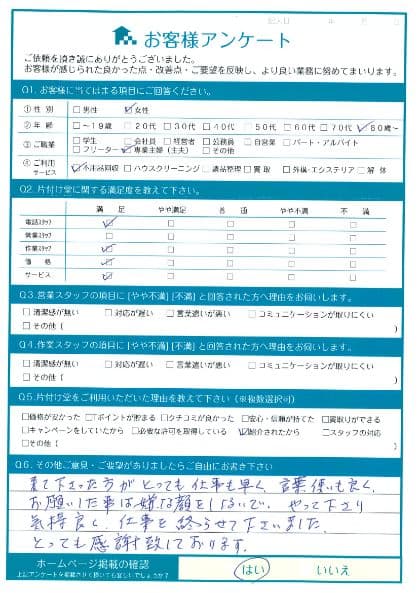 記入日 年 月 日
お客様アンケート
ご依頼を頂き誠にありがとうございました。
お客様が感じられた良かった点・改善点・ご要望を反映し、より良い業務に努めてまいります。
Q1. お客様に当てはまる項目にご回答ください。
①性別 □男性 ☑女性
②年齢 □～19歳 □20代 □30代 □40代 □50代 □60代 □70代 ☑80歳～
③ご職業 □学生 □会社員 □経営者 □公務員 □自営業 □パート・アルバイト
□フリーター ☑専業主婦（主夫） □その他
④ご利用サービス ☑不用品回収 □ハウスクリーニング □遺品整理 □買取 □外構・エクステリア □解体
Q2. 片付け堂に関する満足度を教えて下さい。
満足 やや満足 普通 やや不満 不満
電話スタッフ ☑ □ □ □ □
営業スタッフ □ □ □ □ □
作業スタッフ ☑ □ □ □ □
価格 ☑ □ □ □ □
サービス ☑ □ □ □ □
Q3. 営業スタッフの項目に [やや不満] [不満] と回答された方へ理由をお伺いします。
□清潔感が無い □対応が遅い □言葉遣いが悪い □コミュニケーションが取りにくい
□その他（ ）
Q4. 作業スタッフの項目に [やや不満] [不満] と回答された方へ理由をお伺いします。
□清潔感が無い □対応が遅い □言葉遣いが悪い □コミュニケーションが取りにくい
□その他（ ）
Q5. 片付け堂をご利用いただいた理由を教えて下さい（※複数選択可）
□価格が安かった □Tポイントが貯まる □クチコミが良かった □安心・信頼が持てた □買取りができる
□キャンペーンをしていたから □必要な許可を取得している ☑紹介されたから □スタッフの対応
□その他（ ）
Q6. その他ご意見・ご要望がありましたらご自由にお書き下さい
来て下さった方がとっても仕事も早く、言葉使いも良く、
お願いした事は嫌な顔をしないで、やって下さり
気持良く、仕事を終らせて下さいました
とっても感謝致しております。
ホームページ掲載の確認
上記アンケートを掲載させて頂いても宜しいでしょうか？
はい いいえ